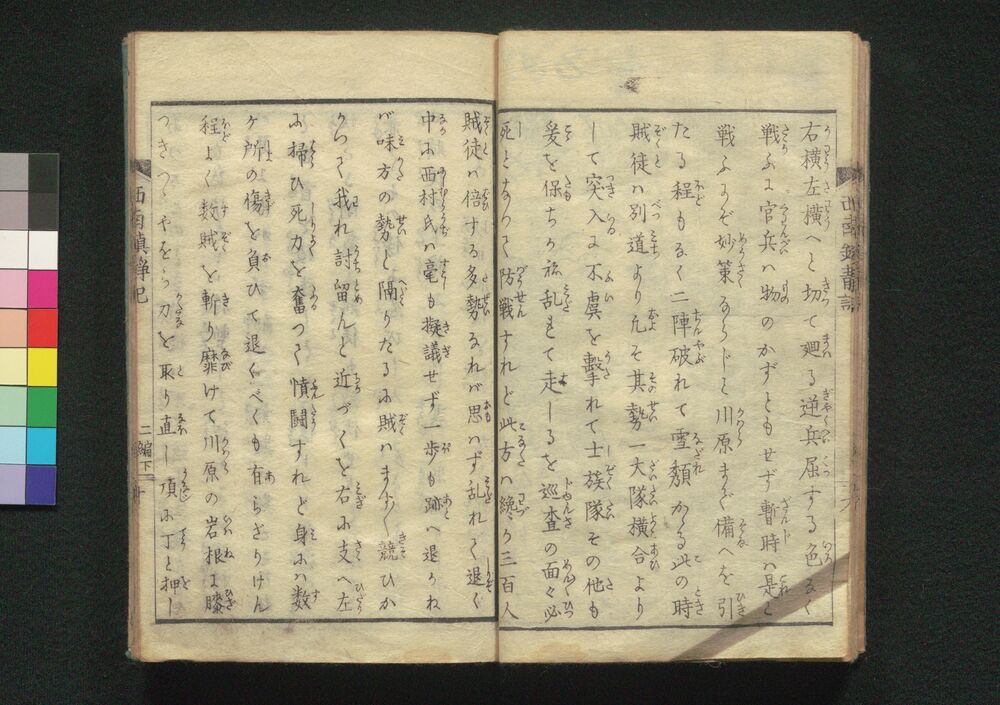 右横左横へと切て廻る逆兵屈する色なく
戦ふに官兵ハ物のかずともせず暫時ハ是と
戦ふうち妙策ならじと川原まで備へを引
たる程もなく二陣破れて雪頽かゝる此の時
賊徒ハ別道より凡そ其勢一大隊横合より
して突入に不虞を撃れて士族隊その他も
爰を保ちかね乱もて走しるを巡査の面々必
死となりて防戦すれど此方ハ纔か三百人
賊徒ハ倍する多勢なれバ思ハず乱れて退く
中に西村氏ハ毫も擬議せず一歩も跡へ退かね
バ味方の勢と隔りたるに賊ハます〳〵競ひか
かりて我れ討留んと近づくを右に支へ左
に掃ひ死力を奮つて憤闘すれど身にハ数
ヶ所の傷を負ひて退くべくも有らざりけん
程よく数賊を斬り靡けて川原の岩根に膝
つきつゝやをら刀を取り直し項に丁と押し
二編下